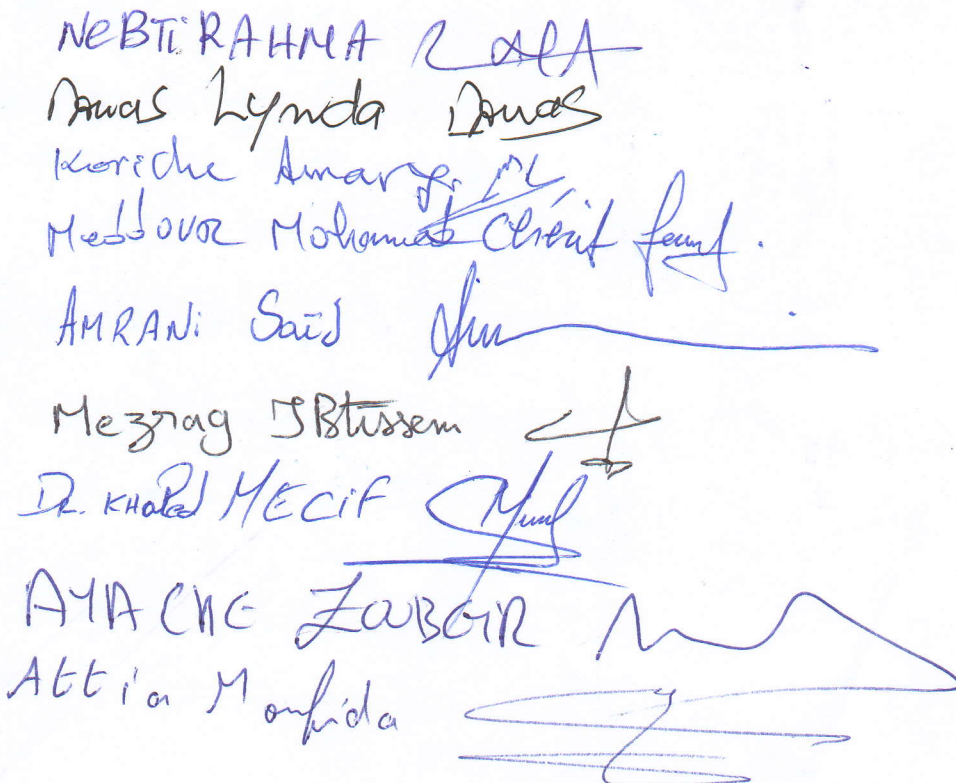 NEBTi RAHMA
Lynda
Koriche Amar
Meddour Mohamed Chérif
AMRANi Saïd
Mezrag IBtissem
DR. KHALED MECiF
AYACHE ZOUBEIR
Attia Moufida